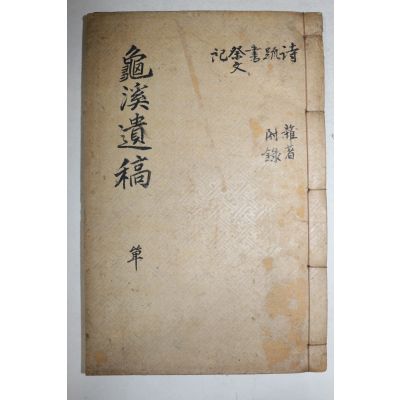 詩疏書祭文記
雜著
附錄
龜溪遺稿
單